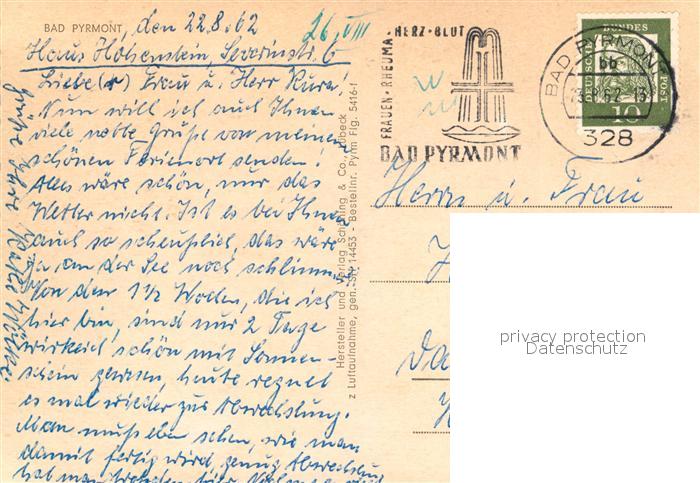 BAD PYRMONT
den 22.8.62
26. VIII
Haus Hohenstein, Severinstr. 6
Liebe(r) Frau u. Herr
Nun will ich auch Ihnen
viele nette Grüße von meinem
schönen Ferienort senden.
Alles wäre schön, nur das
Wetter nicht. Ist es bei Ihnen
auch so scheußlich, das wäre
ja an der See noch schlimmer.
Von den 1½ Wochen, die ich
hier bin, sind nur 2 Tage
wirklich schön mit Sonnen-
schein gewesen, heute regnet
es mal wieder zur Abwechslung.
Man muß eben sehen, wie man
damit fertig wird, genug Abwechslung
hat man
Grüße Ihre
Hersteller und Verlag Schöning & Co., Lübeck
z Luftaufnahme, gen. SH 14453 - Bestellnr. Pyrm Flg. 5416-1
FRAUEN · RHEUMA · HERZ · BLUT
BAD PYRMONT
BAD PYRMONT
bb
328
DEUTSCHE BUNDESPOST
10
Herrn u. Frau
privacy protection
Datenschutz